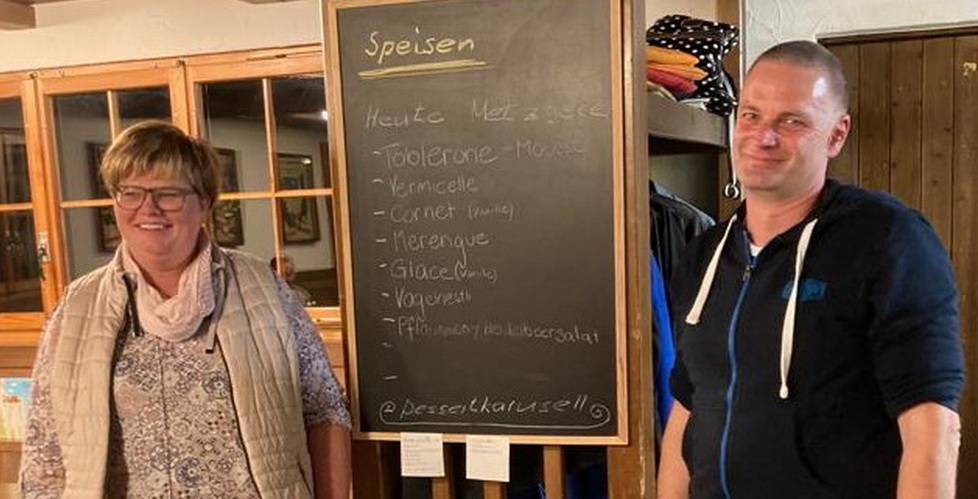 Speisen
Heute Metzgete
- Toblerone - Mousse
- Vermicelle
- Cornet (Vanille)
- Merengue
- Glace (Vanille)
- Vogelnestli
- Pflaumen / Heidelbeersalat
-
-
Dessertkarusell